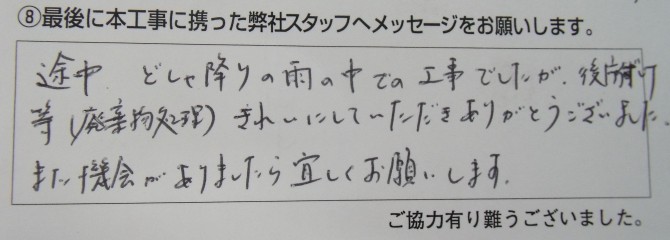 ⑧最後に本工事に携った弊社スタッフへメッセージをお願いします。
途中 どしゃ降りの雨の中での工事でしたが、後片付け
等(廃棄物処理)きれいにしていただきありがとうございました。
また機会がありましたら宜しくお願いします。
ご協力有り難うございました。